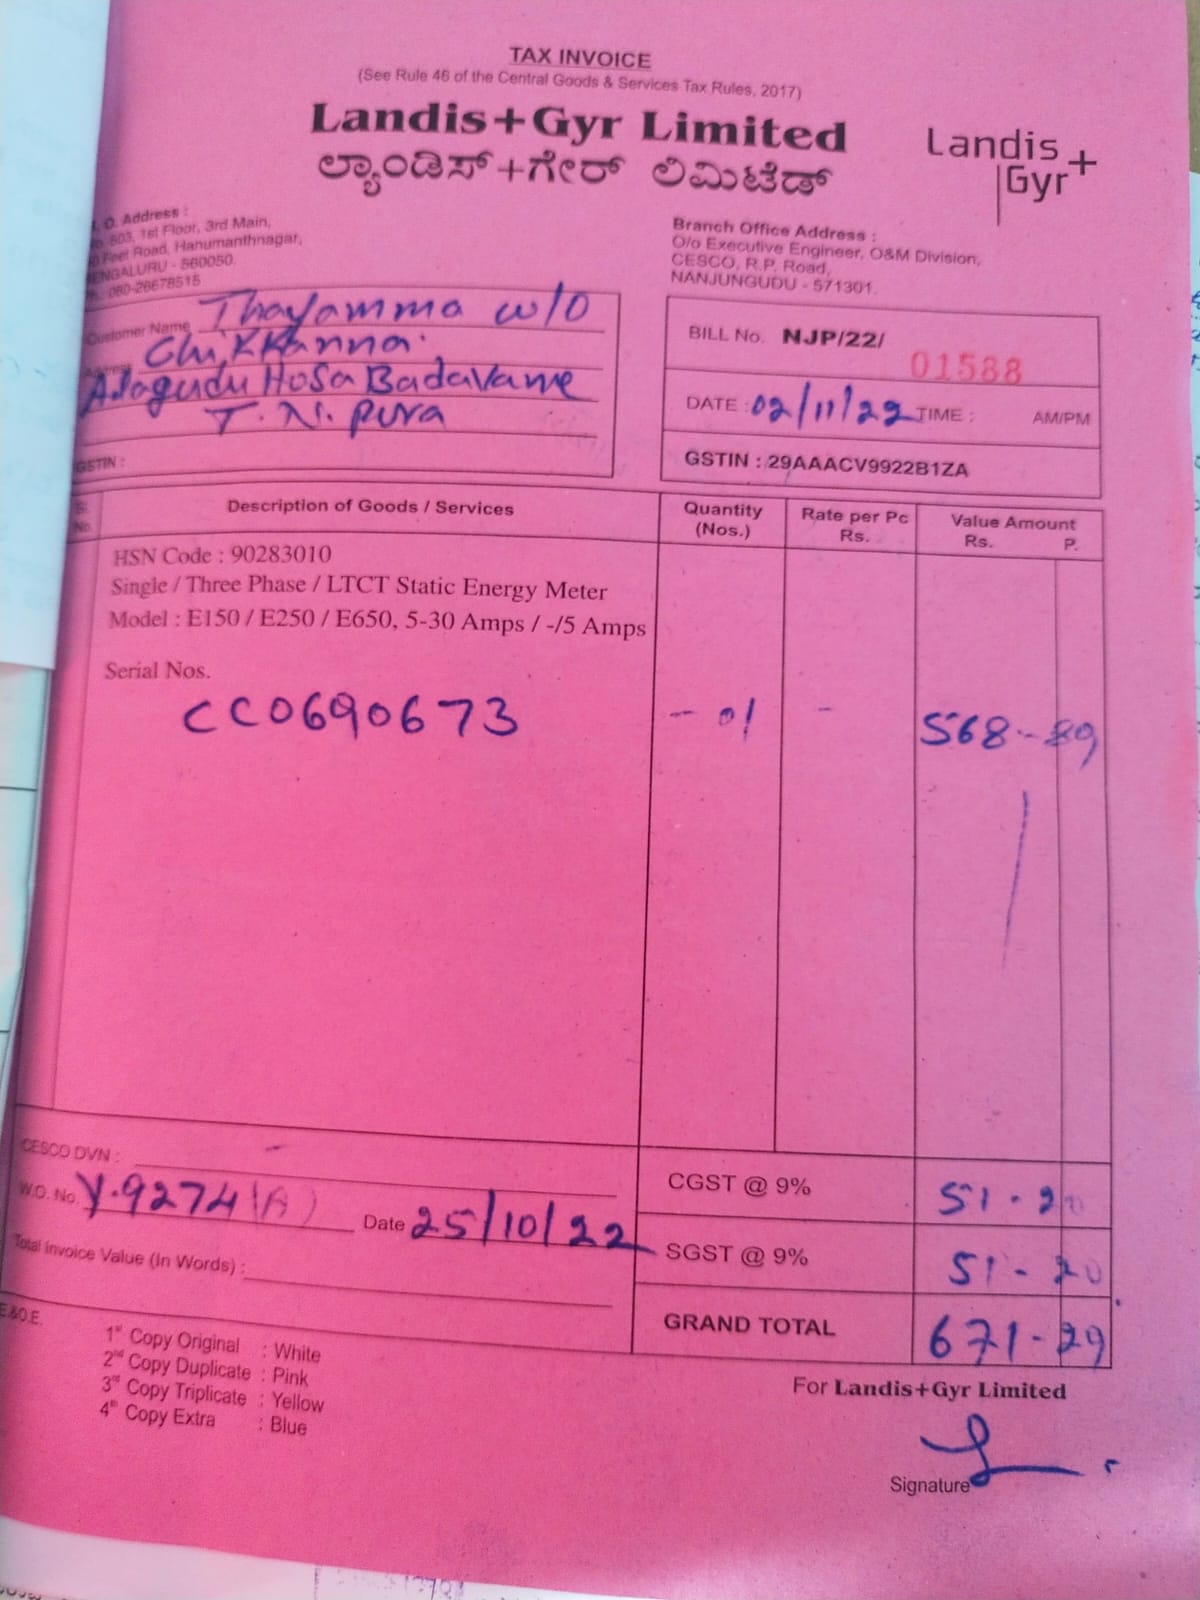 TAX INVOICE
(See Rule 46 of the Central Goods & Services Tax Rules, 2017)
Landis+Gyr Limited
ಲ್ಯಾಂಡಿಸ್+ಗೇರ್ ಲಿಮಿಟೆಡ್
Landis
Gyr+
. O. Address :
603, 1st Floor, 3rd Main,
Feet Road, Hanumanthnagar,
ENGALURU - 560050.
080-26678515
Branch Office Address :
O/o Executive Engineer, O&M Division,
CESCO, R.P. Road,
NANJUNGUDU - 571301.
Customer Name Thayamma w/o
Address Chikkanna.
Alagudu Hosa Badavane
T. N. pura
GSTIN :
BILL No. NJP/22/ 01588
DATE : 02/11/22 TIME : AM/PM
GSTIN : 29AAACV9922B1ZA
Sl. No. Description of Goods / Services Quantity (Nos.) Rate per Pc Rs. Value Amount Rs. P.
HSN Code : 90283010
Single / Three Phase / LTCT Static Energy Meter
Model : E150 / E250 / E650, 5-30 Amps / -/5 Amps
Serial Nos.
CC0690673 - 01 - 568-89
CESCO DVN : -
W.O. No. Y.9274(A) Date 25/10/22
Total Invoice Value (In Words) :
CGST @ 9% 51-20
SGST @ 9% 51-20
GRAND TOTAL 671-29
E.&O.E.
1st Copy Original : White
2nd Copy Duplicate : Pink
3rd Copy Triplicate : Yellow
4th Copy Extra : Blue
For Landis+Gyr Limited
Signature